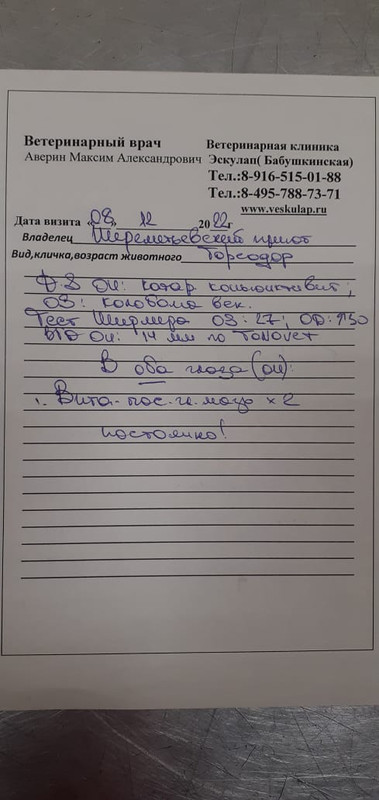 Ветеринарный врач
Ветеринарная клиника
Аверин Максим Александрович
Эскулап( Бабушкинская)
Тел.:8-916-515-01-88
Тел.:8-495-788-73-71
www.veskulap.ru
Дата визита «08» 12 2022г
Владелец Шереметьевский приют
Вид,кличка,возраст животного Торсодор
D-S OU: катар конъюнктивит;
OS: колобома век.
Тест Ширмера OS: 27; OD: 30
OU: 14 мм по Tonovet
В оба глаза (OU):
1. Вита-пос. гл. мазь x 2
постоянно!